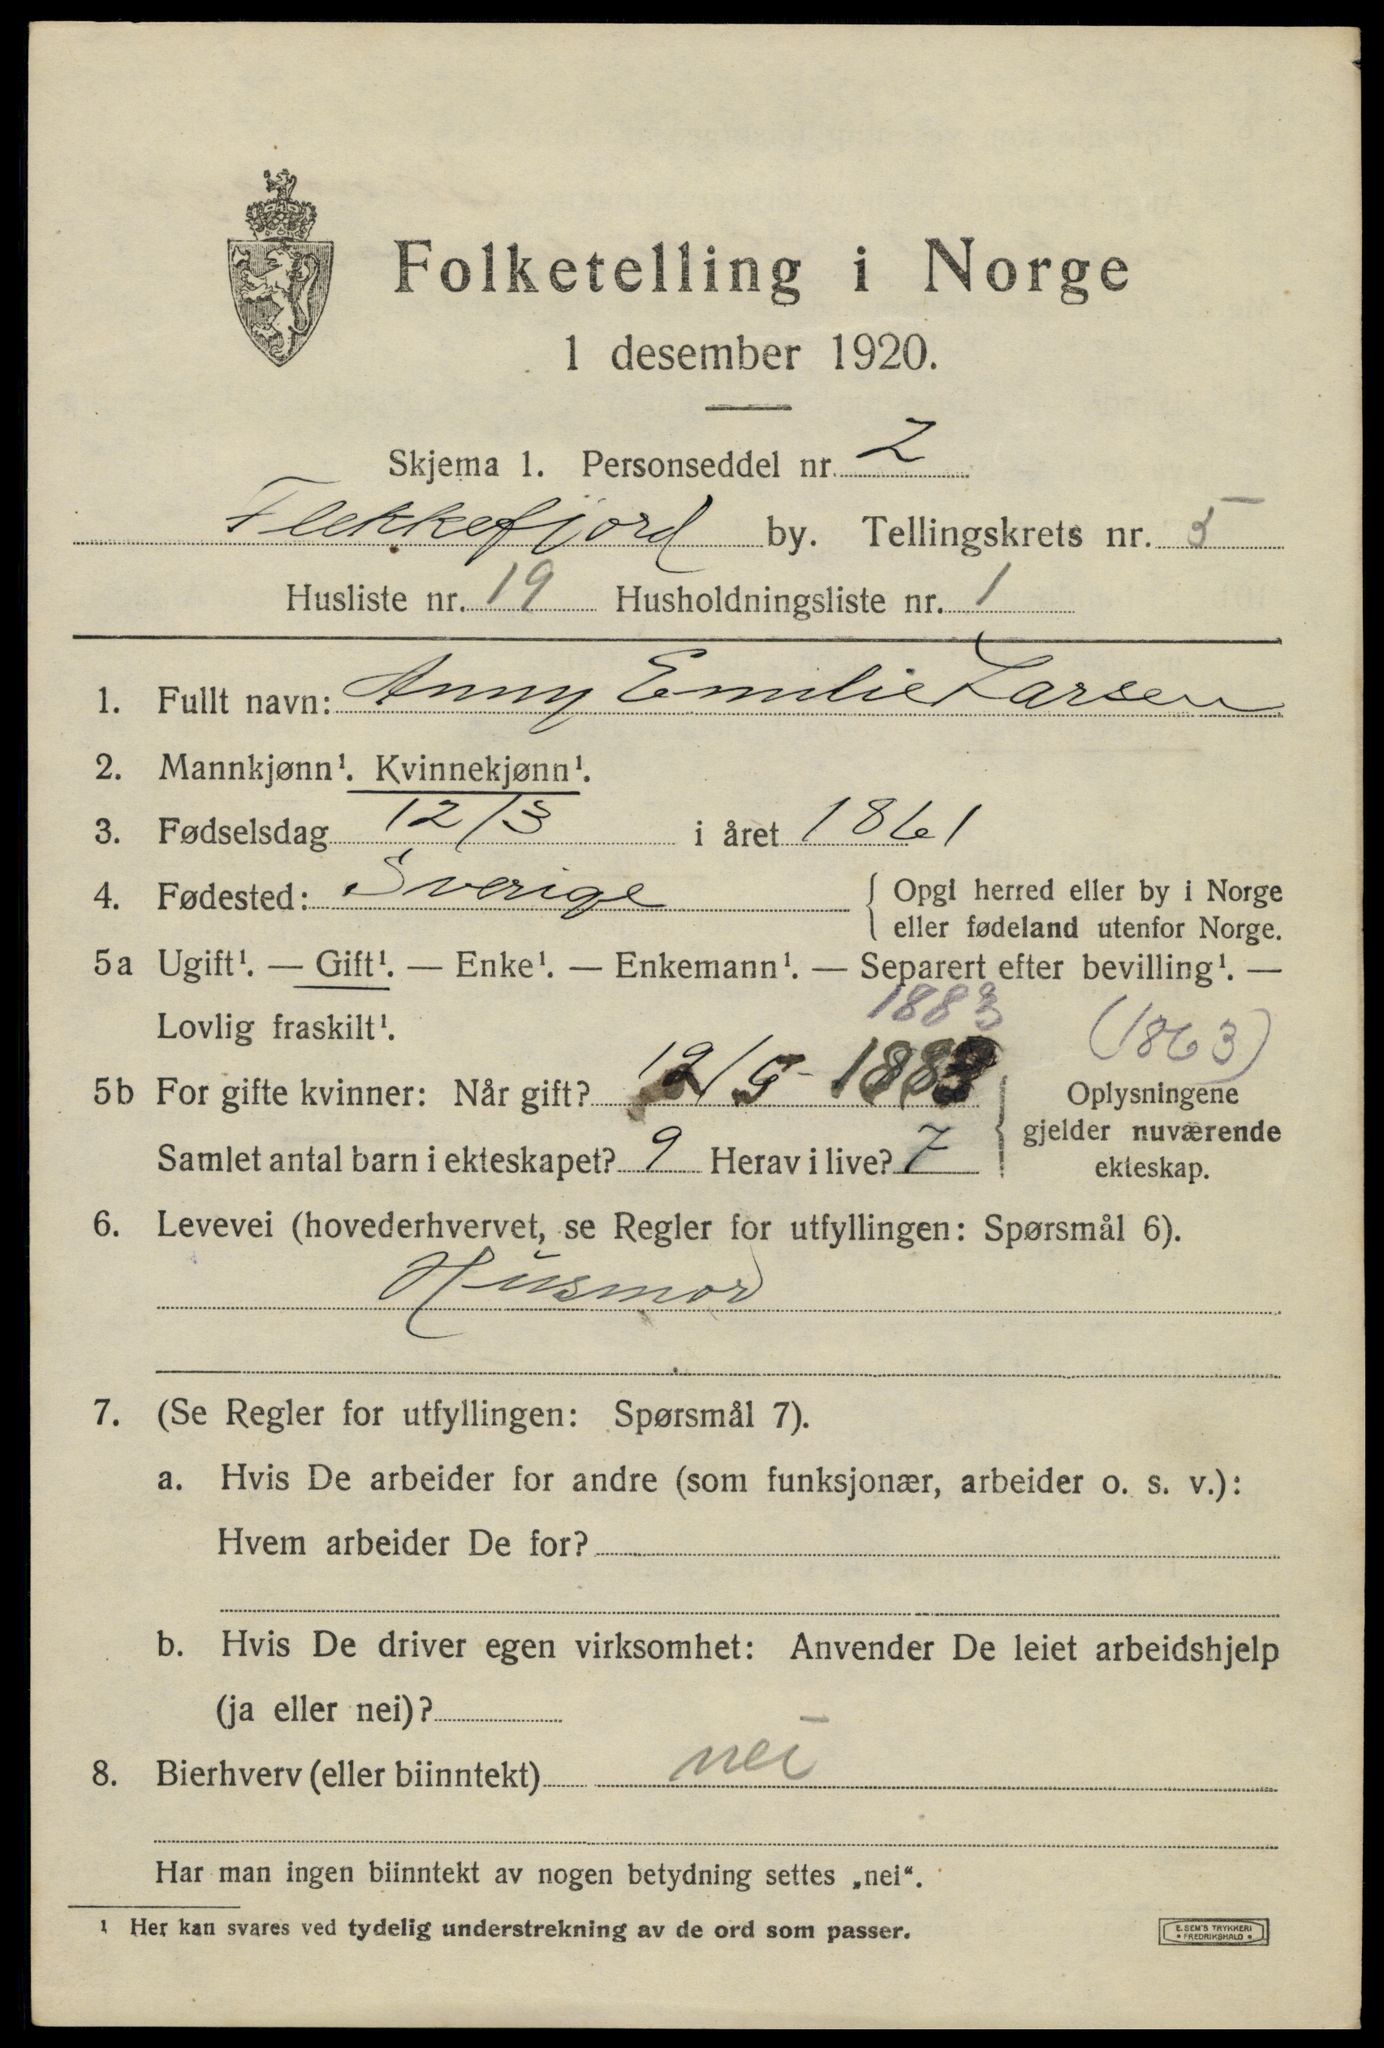 Folketelling i Norge
1 desember 1920.
Skjema 1. Personseddel nr. 2
Flekkefjord by. Tellingskrets nr. 5
Husliste nr. 19 Husholdningsliste nr. 1
1. Fullt navn: Anny Emilie Larsen
2. Mannkjønn¹. Kvinnekjønn¹.
3. Fødselsdag 12/3 i året 1861
4. Fødested: Sverige { Opgi herred eller by i Norge
eller fødeland utenfor Norge.
5a Ugift¹. — Gift¹. — Enke¹. — Enkemann¹. — Separert efter bevilling¹. —
Lovlig fraskilt¹. 1883 (1863)
5b For gifte kvinner: Når gift? 12/5 - 1883 { Oplysningene
gjelder nuværende
Samlet antal barn i ekteskapet? 9 Herav i live? 7 ekteskap.
6. Levevei (hovederhvervet, se Regler for utfyllingen: Spørsmål 6).
Husmor
7. (Se Regler for utfyllingen: Spørsmål 7).
a. Hvis De arbeider for andre (som funksjonær, arbeider o. s. v.):
Hvem arbeider De for?
b. Hvis De driver egen virksomhet: Anvender De leiet arbeidshjelp
(ja eller nei)?
8. Bierhverv (eller biinntekt) nei
Har man ingen biinntekt av nogen betydning settes „nei“.
¹ Her kan svares ved tydelig understrekning av de ord som passer.
E. SEM'S TRYKKERI
• FREDRIKSHALD •